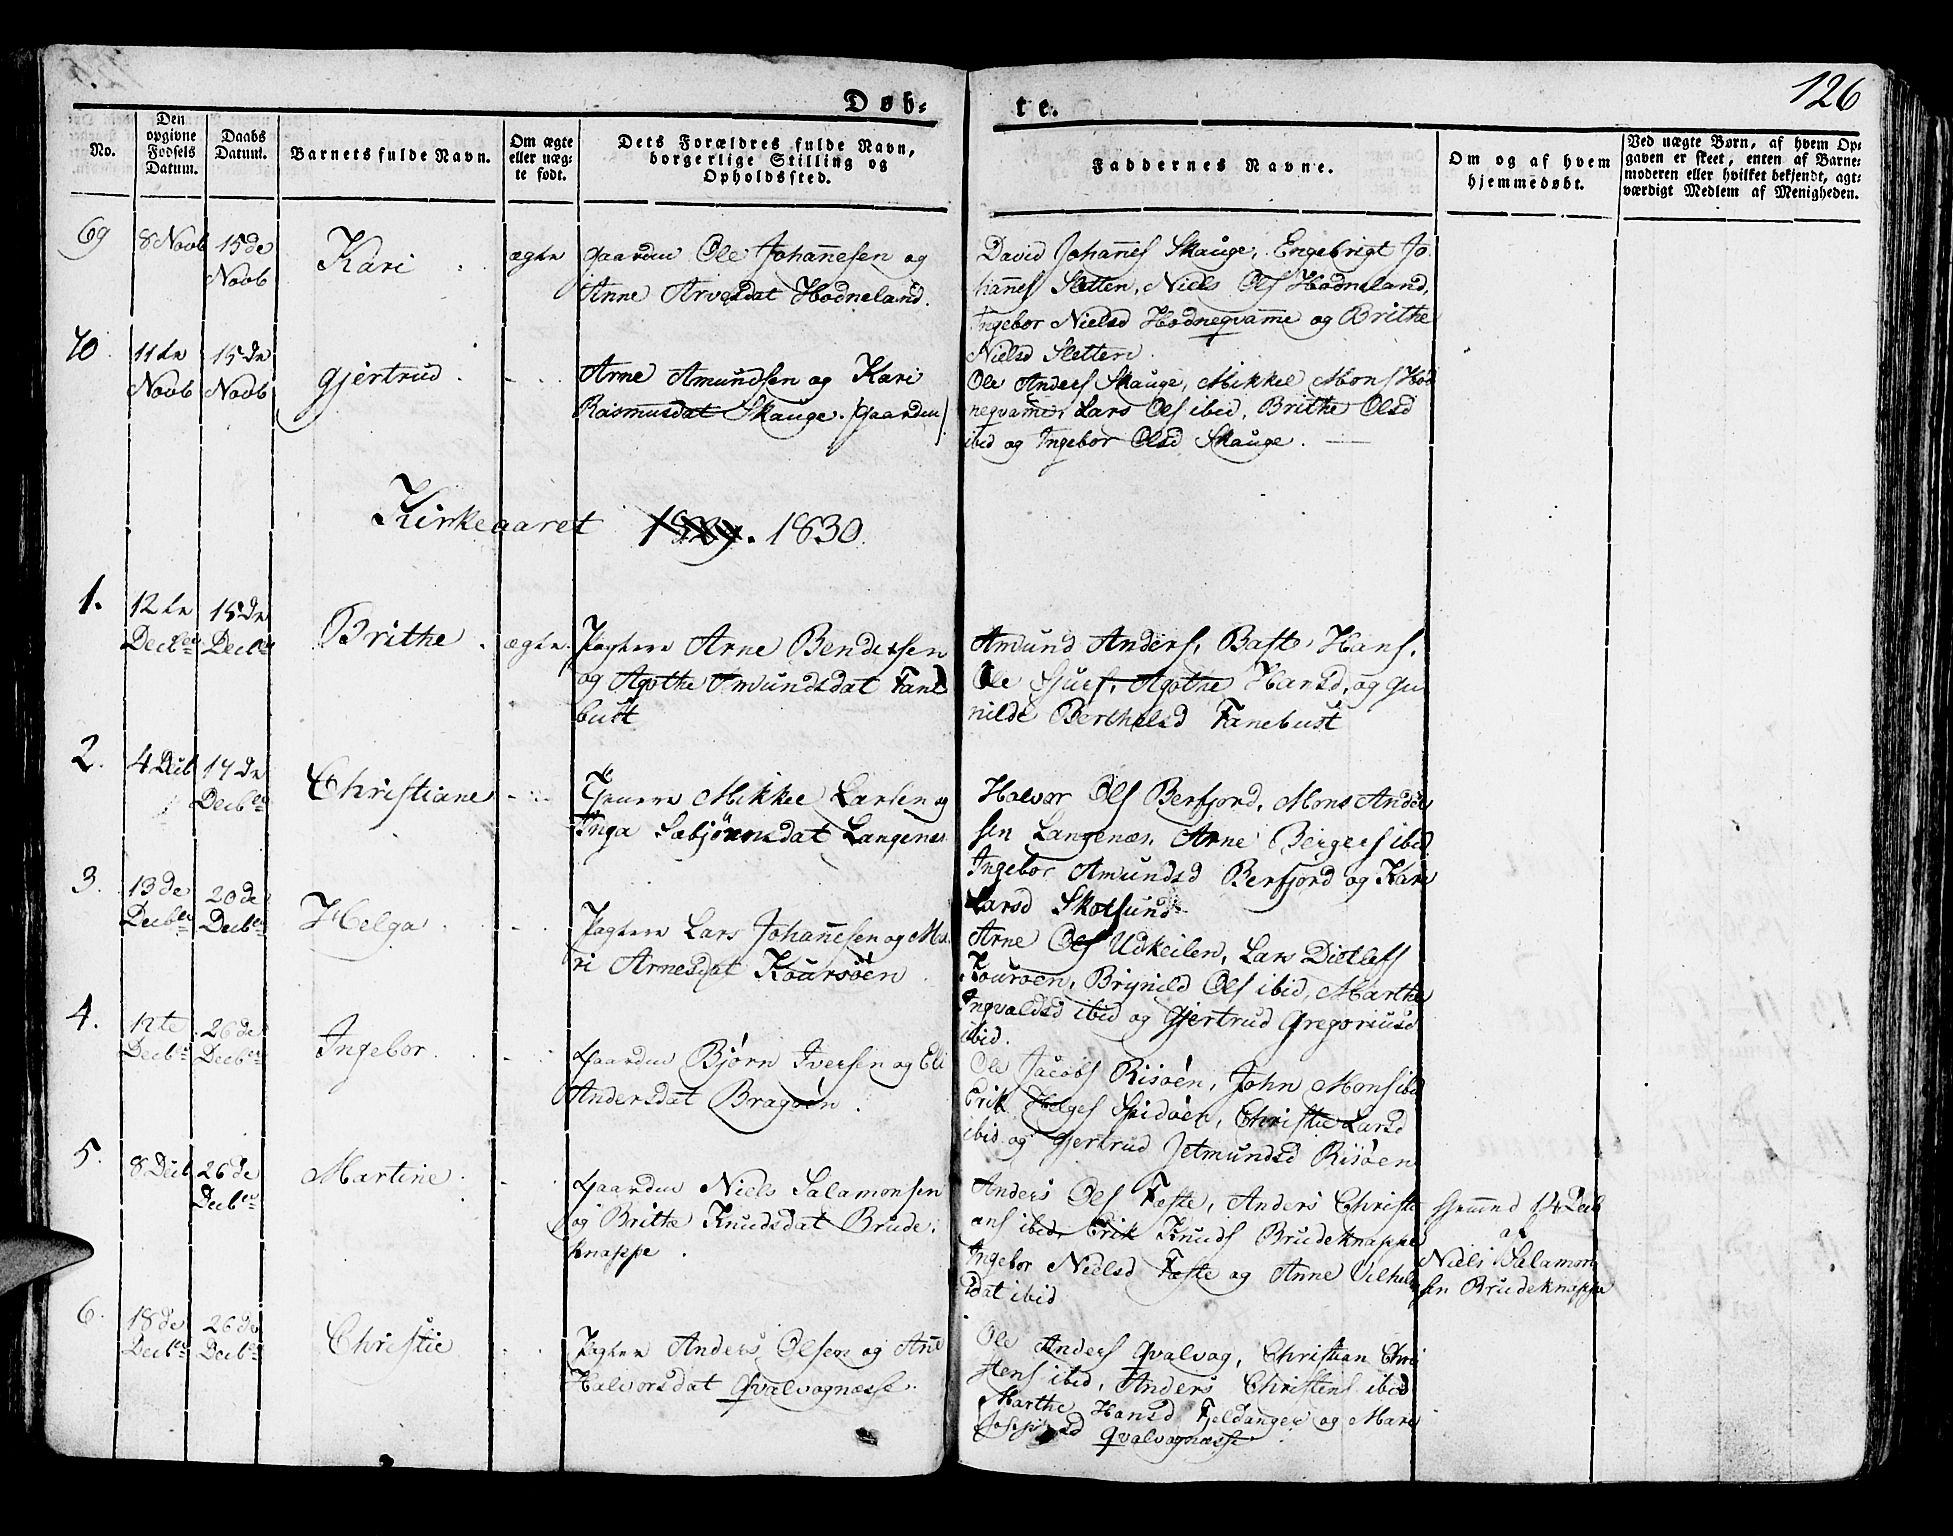 126
Døb-
te.
No.
Den opgivne Fødsels Datum.
Daabs Datum.
Barnets fulde Navn.
Om ægte eller uæg- te født.
Dets Forældres fulde Navn, borgerlige Stilling og Opholdssted.
Faddernes Navne.
Om og af hvem hjemmedøbt.
Ved uægte Børn, af hvem Op- gaven er skeet, enten af Barne- moderen eller hvilket bekjendt, agt- værdigt Medlem af Menigheden.
69
8 Novb
15de Novb
Kari
ægte
Gaardm Ole Johannesen og
Anne Arvesdat Hodneland.
David Johannes Skauge, Engebrigt Jo
hannes Sletten, Niels Ols Hodneland,
Ingebor Nielsd Hodneqvamme og Brithe
Nielsd Sletten.
70
11te Novb
15de Novb
Gjertrud
Arne Amundsen og Kari
Rasmusdat Skauge. Gaardm
Ole Anders Skauge, Mikkel Mons Hod
neqvamme Lars Ols ibid, Brithe Olsd
ibid og Ingebor Olsd Skauge.
Kirkeaaret 1829. 1830
1.
12te Decber
15de Decber
Brithe
ægte
Pagtere Arne Bendixsen
og Agothe Amundsdat Fane
bust
Amund Anders, Bast Hans,
Ole Sjurs, Agothe Hansd, og Gu
nilde Berthelsd Fanebust
2.
4 Decb
17de Decber
Christiane
Mikkel Larsen og
Inga Sæbjörnsdat Langenes
Halvor Ols Berfjord, Mons Ander
sen Langenæs, Arne Bergers ibid
Ingebor Amundsd Berfjord og Kari
Larsd Skotsund
3.
13de Decber
20de Decber
Helga
Pagtere Lars Johannesen og Ma
ri Arnesdat Koursöen
Arne Ols Udkeilen, Lars Ditlefs
Kouroen, Brynild Ols ibid, Marthe
Ingvaldsd ibid og Gjertrud Gregoriusd
ibid.
4.
12te Decbr
26de Decber
Ingebor
Gaardm Bjørn Iversen og Eli
Andersdat Bragöen
Ole Jacobs Risöen, John Mons ibd
Erik Helges Spidöen, Christie Larsd
ibid og Gjertrud Jetmundsd Risöen
5.
8 Decb
26de Decber
Martine
Gaardm Niels Salamonsen
og Brithe Knudsdat Brude
knappe.
Anders Ols Fæste, Anders Christe
ans ibid, Erik Knuds Brudeknappe
Ingebor Nielsd Fæste og Anne Vilhelm
sdat ibid
14 Decb
af
Niels Salamon
sen Brudeknappe
6.
18de Decbr
26de Decbr
Christie
Pagtere Anders Olsen og Anne
Halvorsdat Qvalvognæsse
Ole Anders Qvalvog, Christian Chri
stens ibid, Anders Christens ibid
Marthe Hansd Fjeldanger og Mari
Josephsd Qvalvognæsse